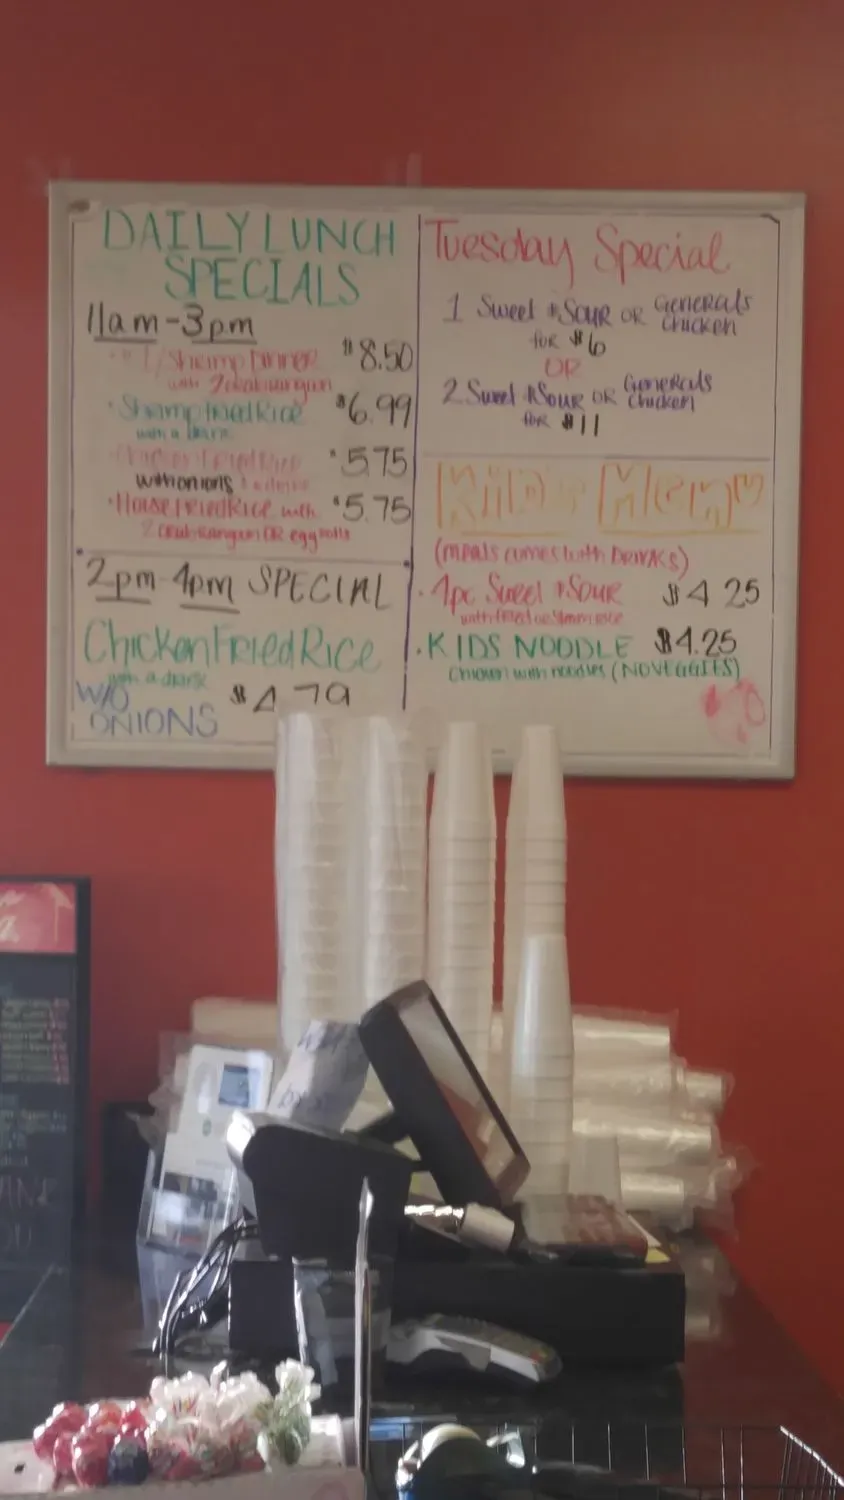 DAILY LUNCH
SPECIALS
11am-3pm
Shrimp Dinner $8.50
with 2 crab rangoon
• Shrimp Fried Rice $6.99
with a drink
• Chicken Fried Rice $5.75
with onions & a drink
• House Fried Rice with $5.75
2 crab rangoon OR egg rolls
2pm-4pm SPECIAL
Chicken Fried Rice
with a drink
W/O
ONIONS
$4.79
Tuesday Special
1 Sweet & SOUR OR Generals
Chicken
for $6
OR
2 Sweet & SOUR OR Generals
Chicken
for $11
Kid's Menu
(meals comes with DRINKS)
• 4pc Sweet & SOUR $4.25
with fried or steam rice
• KIDS NOODLE $4.25
Chicken with noodles (NO VEGGIES)